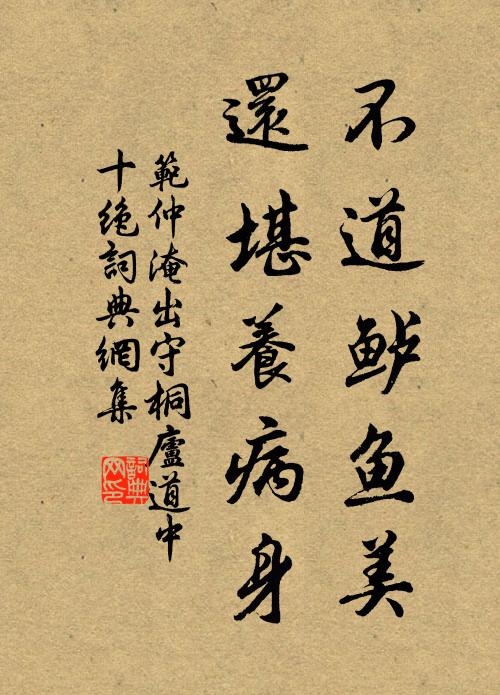 不道鲈鱼美
還堪養病身
範仲淹出守桐廬道中
十絶詞典網集
詞典
网印